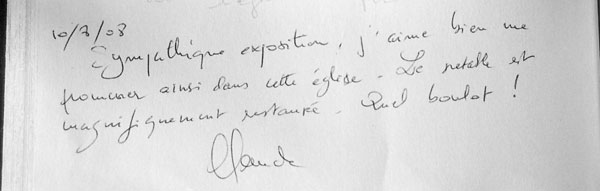 10/7/08
Sympathique exposition, j'aime bien me
promener ainsi dans cette église. Le retable est
magnifiquement restauré. Quel boulot !
Claude